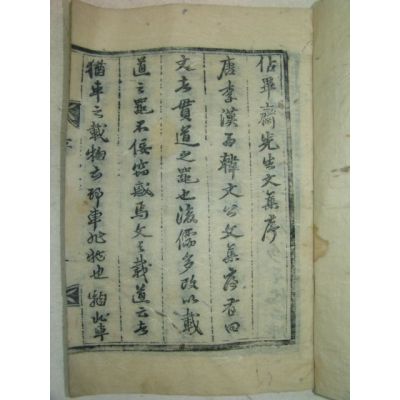 佔畢齋先生文集序
唐李漢爲韓文公文集序有曰
文者貫道之器也後儒多改以載
道之器不佞竊惑焉文之載道云者
猶車之載物云耶車非物也物非車